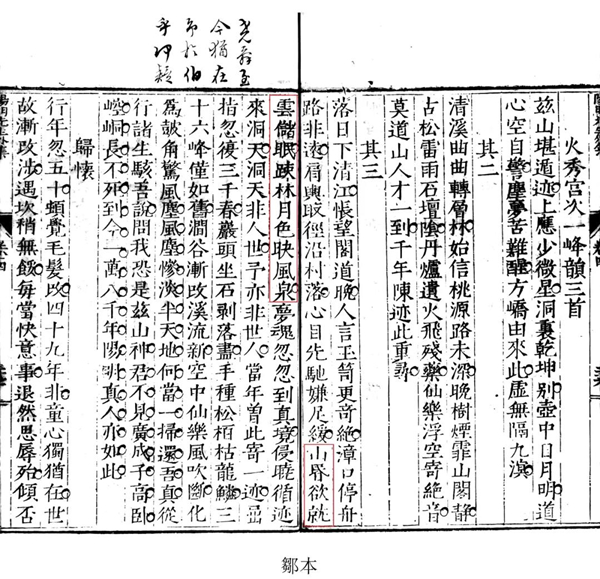 今猶在
火秀宫次一峰韻三首
兹山堪遁迹上應少微星洞裏乾坤别壺中日月明道
心空自警塵夢苦難醒方嶠由來此虚無隔九溟
其二
清溪曲曲轉層林始信桃源路未深晚樹煙霏山閣静
古松雷雨石壇陰丹爐遺火飛殘藥仙樂浮空寄絶音
莫道山人才一到千年陳迹此重尋
其三
落日下清江悵望閣道晚人言玉笥更奇絶漳口停舟
路非遠肩輿取徑沿村落心目先馳嫌足緩山昏欲就
雲儲眠疎林月色映風泉夢魂忽忽到真境侵曉循迹
來洞天洞天非人世予亦非世人當年曾此寄一迹屈
指忽復三千春巖頭坐石剥落盡手種松栢枯龍鱗三
十六峰僅如舊澗谷漸改溪流新空中仙樂風吹斷化
為皷角驚風塵風塵慘淡半天地何當一掃還吾真從
行諸生駭吾說問我恐是兹山神君不見廣成子高卧
崆峒長不死到今一萬八千年陽明真人亦如此
歸懷
行年忽五十頓覺毛髮改四十九年非童心獨猶在世
故漸改涉遇坎稍無餒每當快意事退然思辱殆傾否
卷四
鄒本